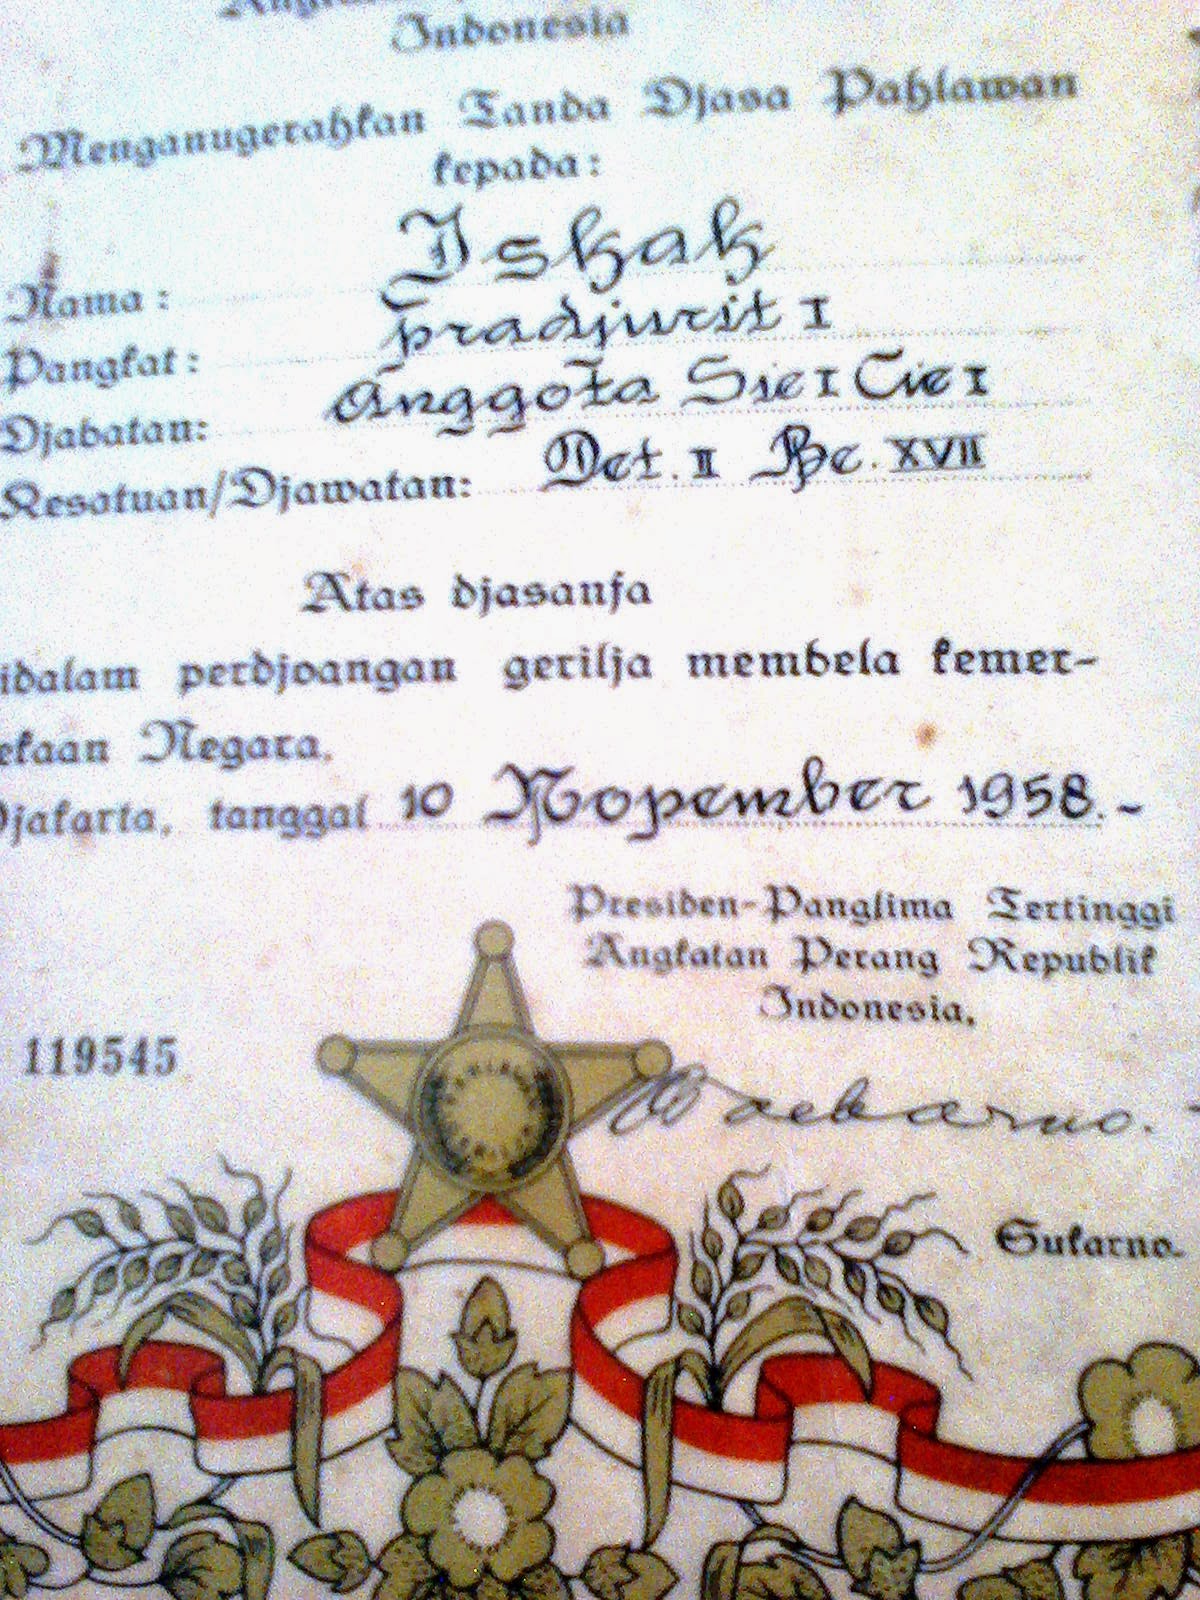 Indonesia
Menganugerahkan Tanda Djasa Pahlawan
kepada:
Nama : Ishak
Pangkat : Pradjurit I
Djabatan: Anggota Sie I Cie I
Kesatuan/Djawatan: Det. II Be. XVII
Atas djasanja
idalam perdjoangan gerilja membela kemer-
ekaan Negara.
Djakarta, tanggal 10 Nopember 1958.-
Presiden-Panglima Tertinggi
Angkatan Perang Republik
Indonesia,
119545
Soekarno.
Sukarno.